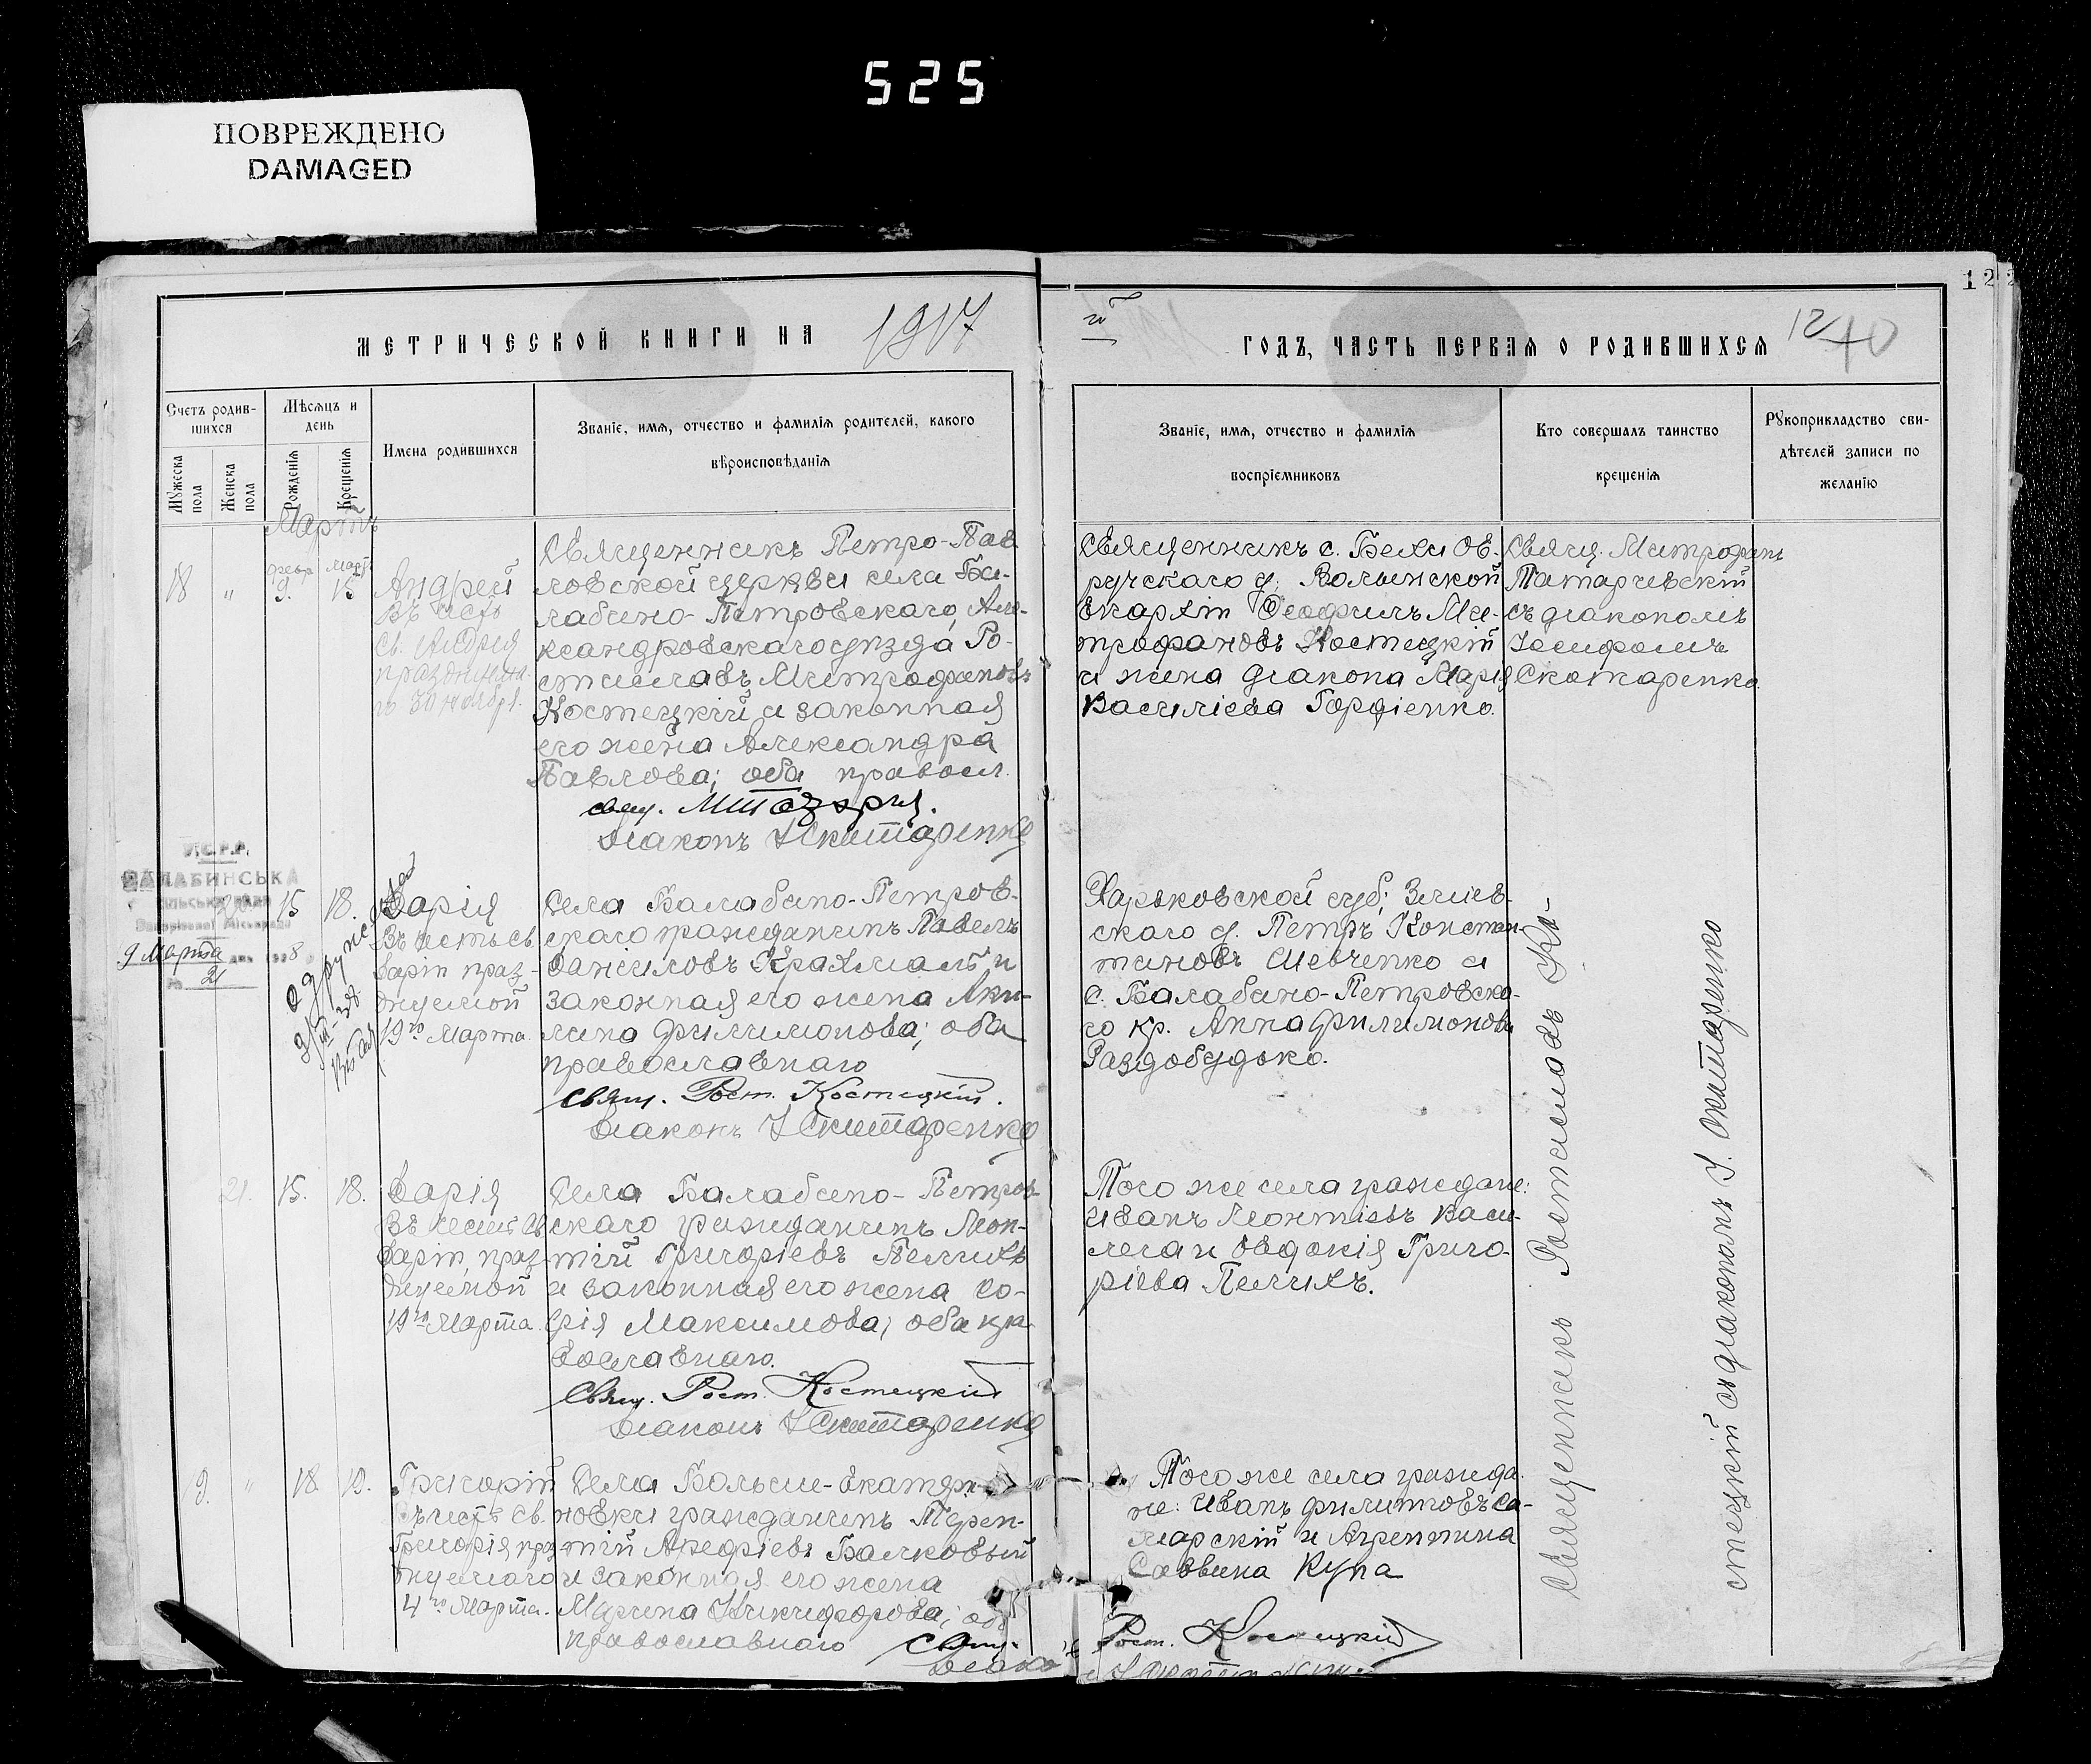 525
ПОВРЕЖДЕНО
DAMAGED
122
МЕТРИЧЕСКОЙ КНИГИ НА 1917
й ГОДЪ, ЧАСТЬ ПЕРВАЯ О РОДИВШИХСЯ
12
40
Счетъ родив-
шихся
Мужеска пола
Женска пола
Мѣсяцъ и
день
Рожденія
Крещенія
Имена родившихся
Званіе, имя, отчество и фамилія родителей, какого
вѣроисповѣданія
Званіе, имя, отчество и фамилія
воспріемниковъ
Кто совершалъ таинство
крещенія
Рукоприкладство сви-
дѣтелей записи по
желанію
Мартъ
18 " февр. 9. март. 15
Андрей
Въ честь
св. Андрея
30 ноября.
Священникъ Петро-Пав
ловской церкви села Ба-
лабино-Петровскаго, Але-
ксандровскаго уѣзда Ро-
стиславъ Митрофановъ
Костецкій и законная
его жена Александра
Павлова; оба правосл.
свящ.
Діаконъ І Скитаренко
Священникъ с. Бехи Ов-
ручскаго у. Волынской
Епархіи Ѳеофилъ Ми-
трофановъ Костецкій
и жена діакона Марія
Василіева Гордіенко.
Свящ. Митрофанъ
съ діакономъ
Іосифомъ
Скитаренко
У.С.Р.Р.
БАЛАБИНСЬКА
9 Марта
21
15 18. Дарія
Въ честь св.
Даріи праз-
днуемой
19го Марта.
Села Балабино-Петров-
скаго гражданинъ Павелъ
Даниловъ Крахмаль и
законная его жена Аки-
лина Филимонова; оба
православнаго
Свящ. Рост. Костецкій.
Діаконъ І Скитаренко
Харьковской губ; Зміев-
скаго у. Петръ Констан-
тиновъ Шевченко и
с. Балабино-Петровска-
го кр. Анна Филимонова
Раздобудько.
21. 15. 18. Дарія
Въ честь Св
Даріи, праз-
днуемой
19го Марта.
Села Балабино-Петров-
скаго гражданинъ Леон-
тій Григоріевъ Пелихъ
и законная его жена Со-
фія Максимова; оба пра
вославнаго.
Свящ. Рост. Костецкій
Діаконъ І Скитаренко
Того же села граждане:
Иванъ Леонтіевъ Васи-
лега и Евдокія Григо-
ріева Пелихъ.
19. " 18 19. Григорій
Въ честь св.
Григорія праз
днуемаго
4го Марта.
Села Больше-Екатери-
новки гражданинъ Терен-
тій Андріевъ Балковый
и законная его жена
Марина Никифорова; оба
православнаго
Того же села гражда-
не: Иванъ Филиповъ Са-
марскій и Агрепина
Саввина Купа
Свящ. Рост. Костецкій
Священникъ Ростиславъ Ко-
стецкій съ діакономъ І. Скитаренко